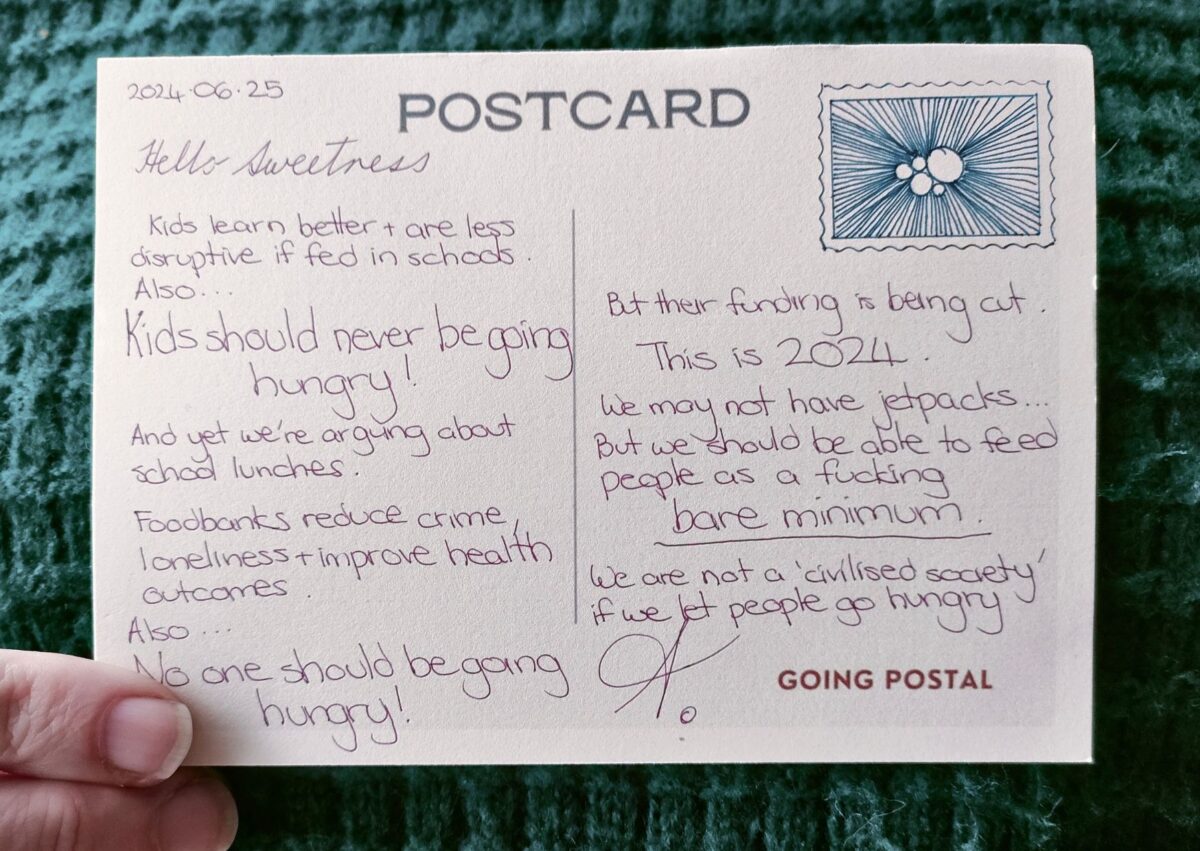 2024·06·25
POSTCARD
Hello Sweetness
Kids learn better + are less
disruptive if fed in schools.
Also...
Kids should never be going
hungry!
And yet we're arguing about
school lunches.
Foodbanks reduce crime,
loneliness + improve health
outcomes.
Also...
No one should be going
hungry!
But their funding is being cut.
This is 2024.
We may not have jetpacks...
But we should be able to feed
people as a fucking
bare minimum.
We are not a 'civilised society'
if we let people go hungry
GOING POSTAL